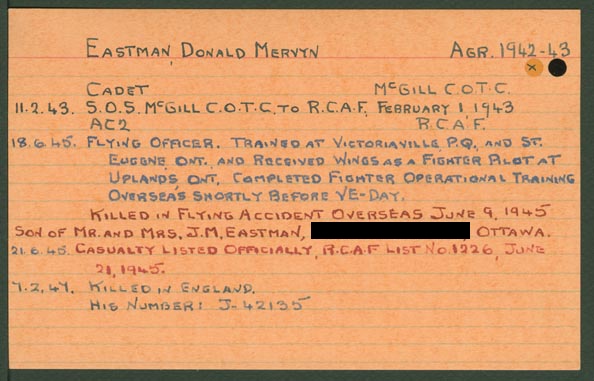 EASTMAN, DONALD MERVYN AGR. 1942-43
x
CADET McGILL C.O.T.C.
11.2.43. S.O.S. McGILL C.O.T.C. TO R.C.A.F. FEBRUARY 1, 1943
AC2 R.C.A.F.
18.6.45. FLYING OFFICER. TRAINED AT VICTORIAVILLE, P.Q., AND ST.
EUGENE, ONT. AND RECEIVED WINGS AS A FIGHTER PILOT AT
UPLANDS, ONT., COMPLETED FIGHTER OPERATIONAL TRAINING
OVERSEAS SHORTLY BEFORE VE-DAY.
KILLED IN FLYING ACCIDENT OVERSEAS JUNE 9, 1945
SON OF MR. AND MRS. J.M. EASTMAN, OTTAWA.
21.6.45. CASUALTY LISTED OFFICIALLY, R.C.A.F LIST NO. 1226, JUNE
21, 1945.
7.2.47. KILLED IN ENGLAND.
HIS NUMBER: J-42135